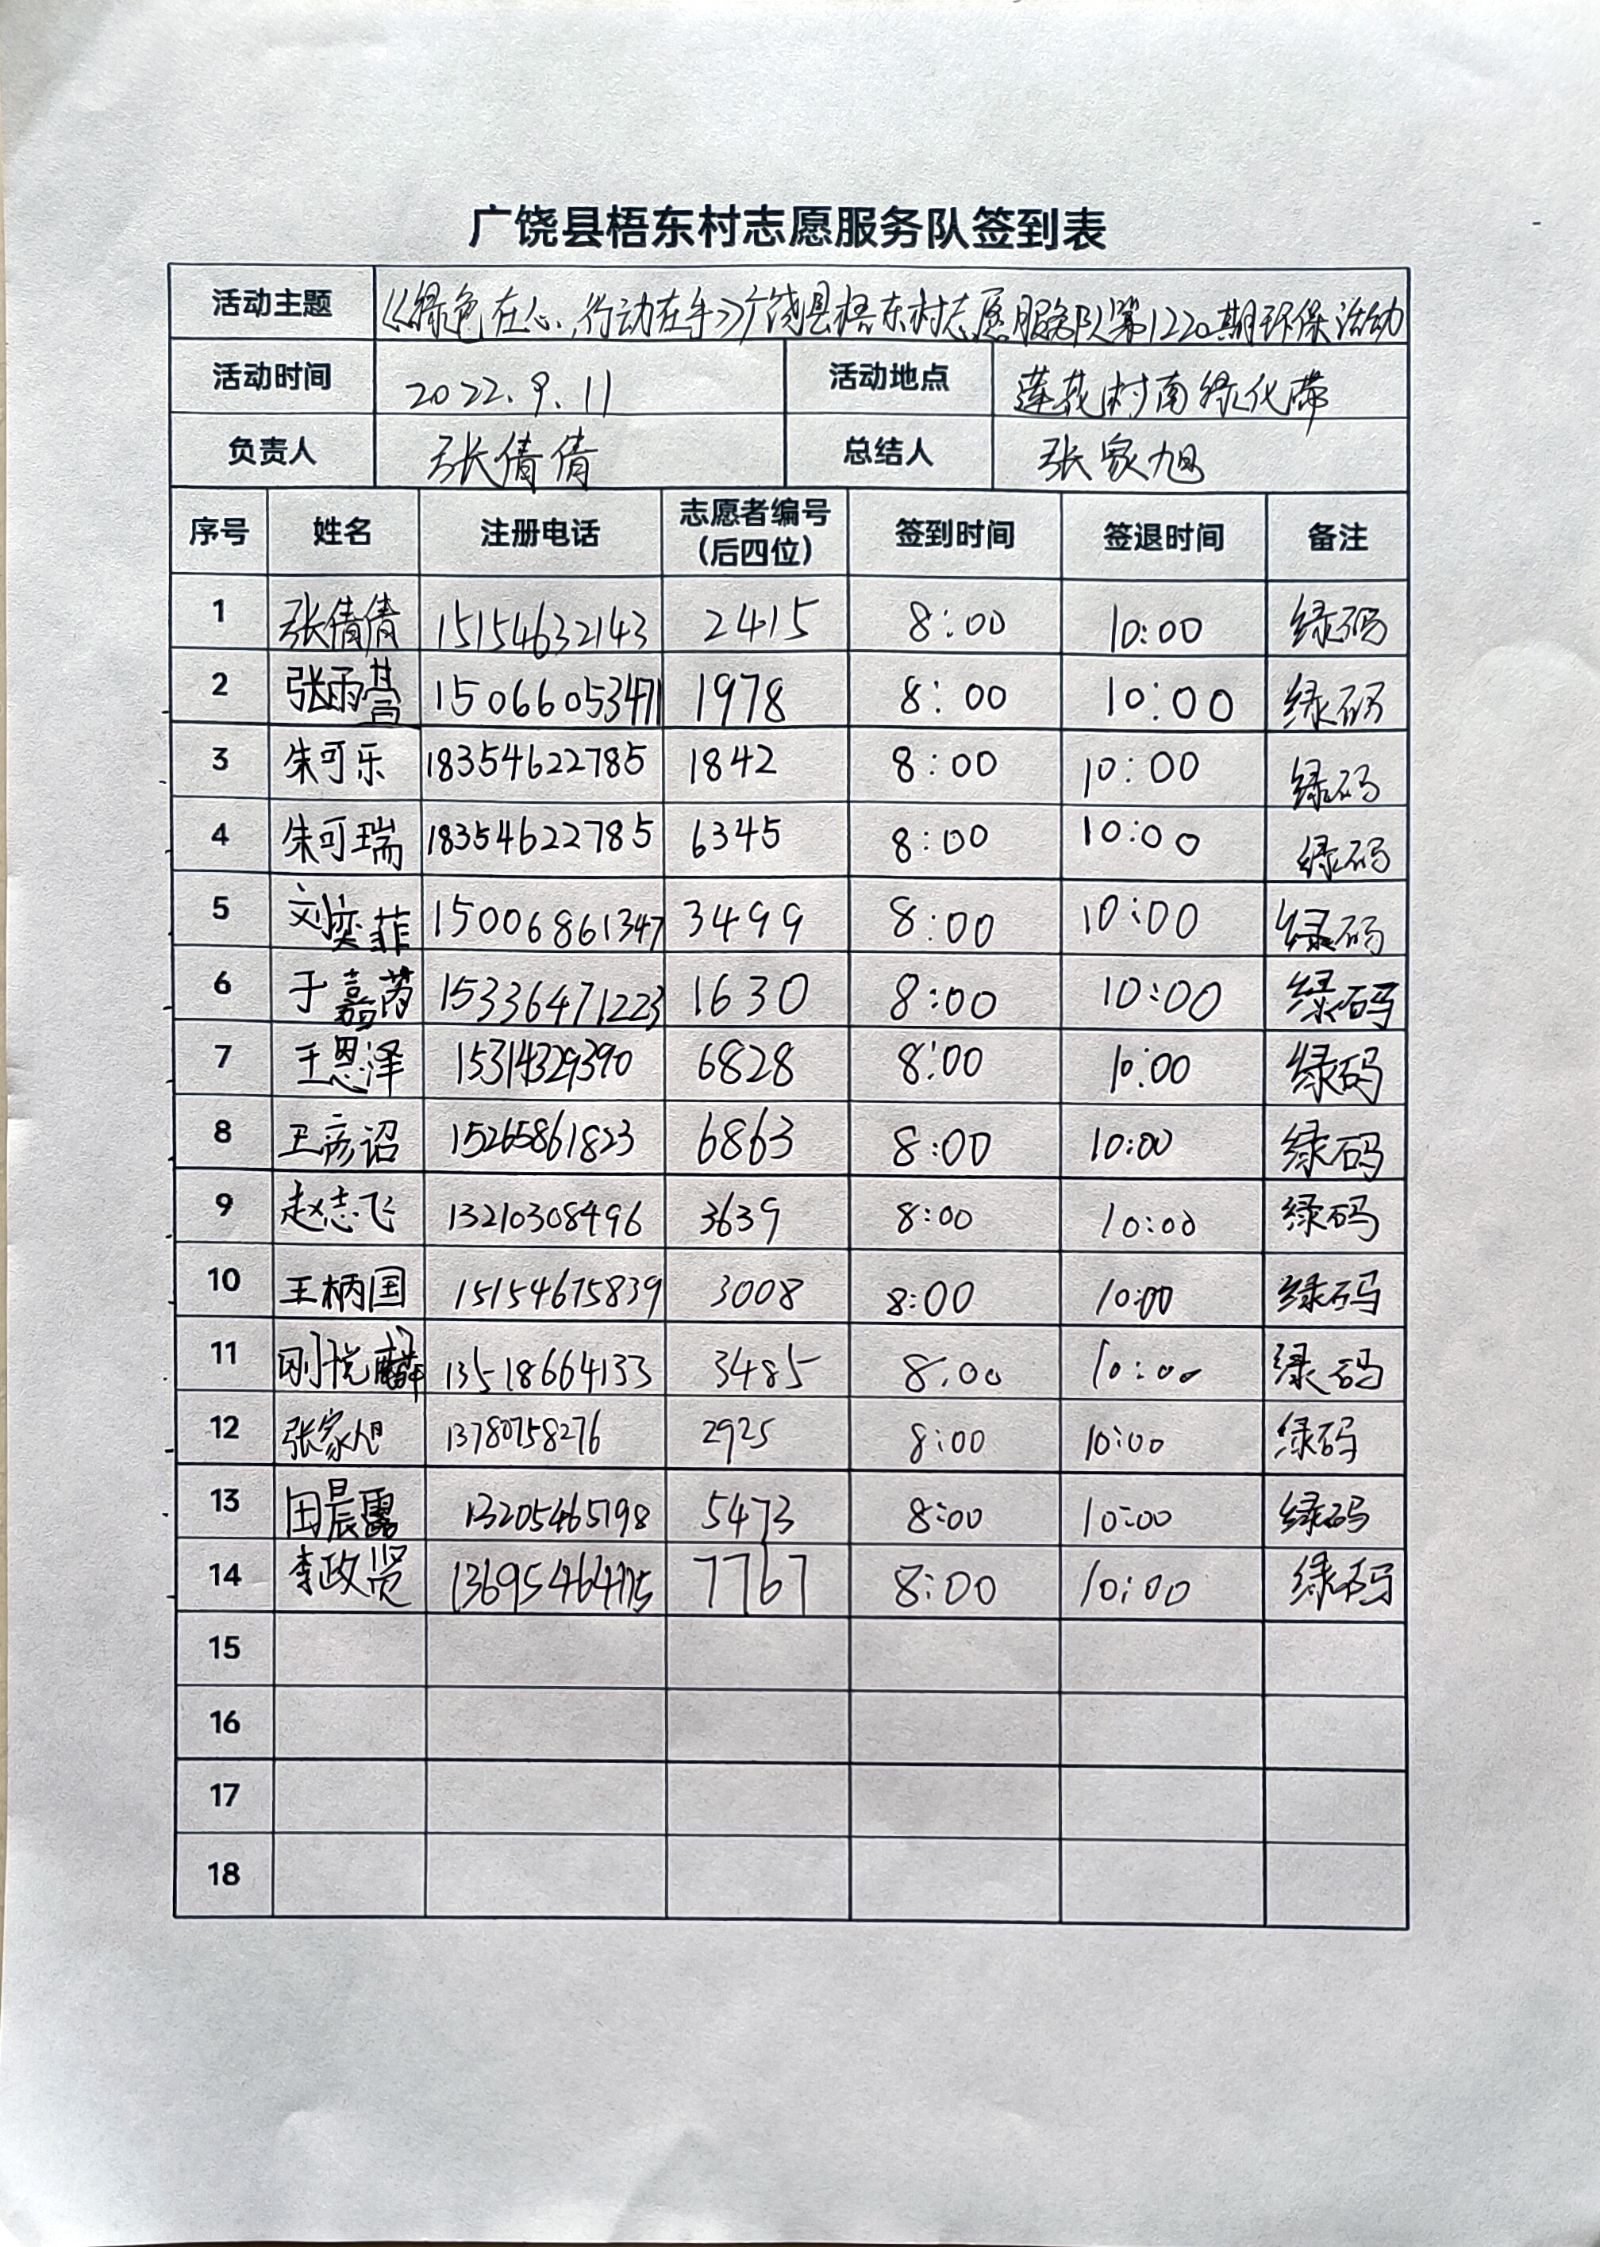 广饶县梧东村志愿服务队签到表
活动主题 《绿色在心、行动在手》广饶县梧东村志愿服务队第1220期环保活动
活动时间 2022.9.11 活动地点 莲花村南绿化带
负责人 张倩倩 总结人 张家旭
序号 姓名 注册电话 志愿者编号(后四位) 签到时间 签退时间 备注
1 张倩倩 15154632143 2415 8:00 10:00 绿码
2 张雨萱 15066053471 1978 8:00 10:00 绿码
3 朱可乐 18354622785 1842 8:00 10:00 绿码
4 朱可瑞 18354622785 6345 8:00 10:00 绿码
5 刘奕菲 15006861347 3499 8:00 10:00 绿码
6 于嘉芮 15336471223 1630 8:00 10:00 绿码
7 王恩泽 15314329390 6828 8:00 10:00 绿码
8 王彦诏 15265861823 6863 8:00 10:00 绿码
9 赵志飞 13210308496 3639 8:00 10:00 绿码
10 王柄国 15154675839 3008 8:00 10:00 绿码
11 刚悦麟 13518664133 3485 8:00 10:00 绿码
12 张家旭 13780758276 2925 8:00 10:00 绿码
13 田晨露 13205465198 5473 8:00 10:00 绿码
14 李政贤 13695464775 7767 8:00 10:00 绿码
15
16
17
18